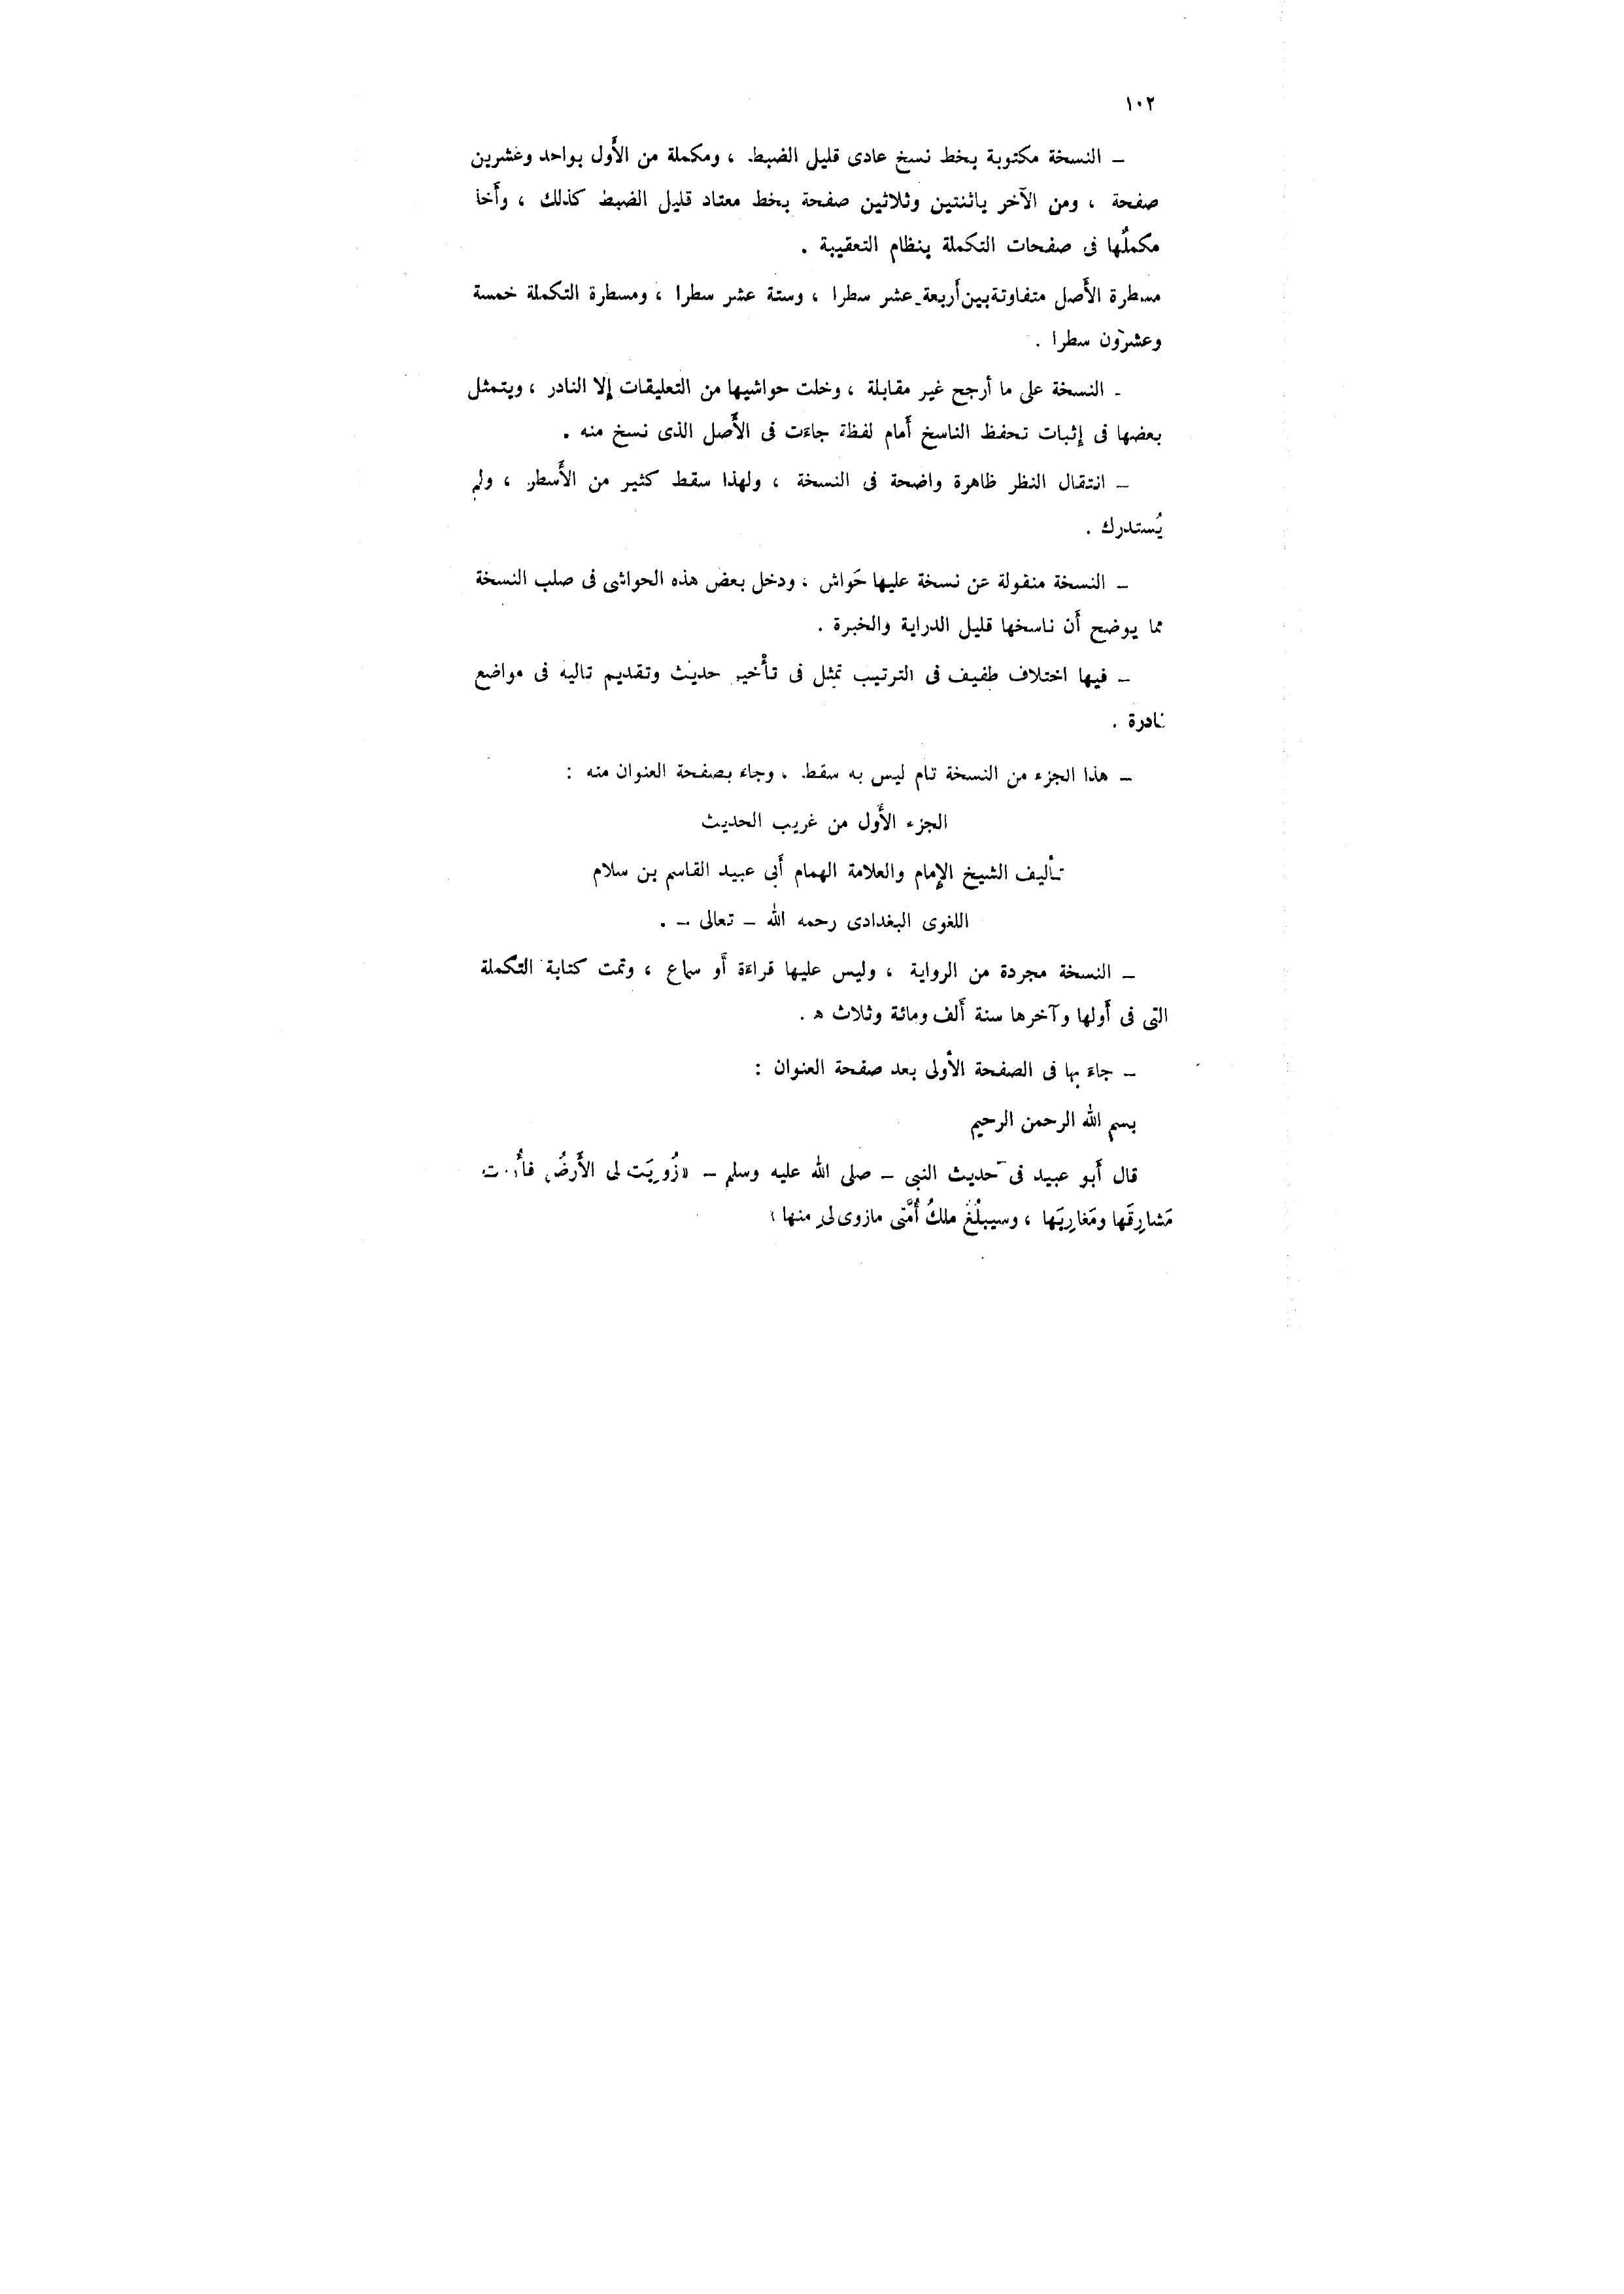 ١٠٢
– النسخة مكتوبة بخط نسخ عادى قليل الضبط ، ومكملة من الأَول بواحد وعشرين
صفحة ، ومن الآخر باثنتين وثلاثين صفحة بخط معتاد قليل الضبط كذلك ، وأَخذ
مكملُها فى صفحات التكملة بنظام التعقيبة .
مسطرة الأَصل متفاوتة بين أَربعة عشر سطرا ، وستة عشر سطرا ، ومسطرة التكملة خمسة
وعشرون سطرا .
- النسخة على ما أرجح غير مقابلة ، وخلت حواشيها من التعليقات إلا النادر ، ويتمثل
بعضها فى إثبات تحفظ الناسخ أَمام لفظة جاءَت فى الأَصل الذى نسخ منه .
– انتقال النظر ظاهرة واضحة فى النسخة ، ولهذا سقط كثير من الأَسطر ، ولم
يُستدرك .
– النسخة منقولة عن نسخة عليها حَواش ، ودخل بعض هذه الحواشى فى صلب النسخة
مما يوضح أَن ناسخها قليل الدراية والخبرة .
– فيها اختلاف طفيف فى الترتيب تمثل فى تأْخير حديث وتقديم تاليه فى مواضع
نادرة .
– هذا الجزء من النسخة تام ليس به سقط ، وجاء بصفحة العنوان منه :
الجزء الأَول من غريب الحديث
تأليف الشيخ الإمام والعلامة الهمام أَبى عبيد القاسم بن سلام
اللغوى البغدادى رحمه الله – تعالى – .
– النسخة مجردة من الرواية ، وليس عليها قراءَة أَو سماع ، وتمت كتابة التكملة
التى فى أَولها وآخرها سنة أَلف ومائة وثلاث ه .
– جاءَ بها فى الصفحة الأُولى بعد صفحة العنوان :
بسم الله الرحمن الرحيم
قال أَبو عبيد فى حديث النبى – صلى الله عليه وسلم – «زُوِيَت لى الأَرضُ
مَشارِقَها ومَغارِبَها ، وسيبلُغ ملكُ أُمَّتى مازوى لى منها »